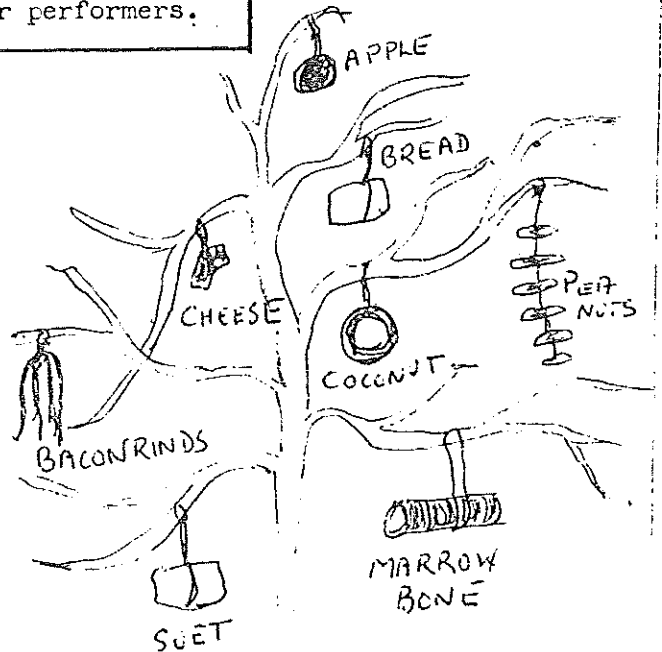 r performers.
APPLE
BREAD
CHEESE
PEA
NUTS
COCONUT
BACONRINDS
MARROW
BONE
SUET